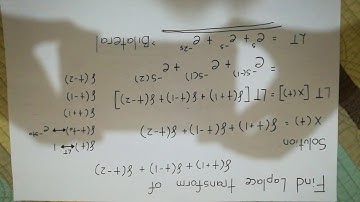 Find Laplace Transform of
δ(t+1) + δ(t-1) + δ(t-2)
Solution
X(t) = δ(t+1) + δ(t-1) + δ(t-2)
LT [x(t)] = LT [δ(t+1) + δ(t-1) + δ(t-2)]
= e^-s(-1) + e^-s(1) + e^-s(2)
LT = e^s + e^-s + e^-2s = Bilateral
δ(t) ←LT→ 1
δ(t-t₀) ↔ e^-st₀
δ(t+1)
δ(t-1)
δ(t-2)